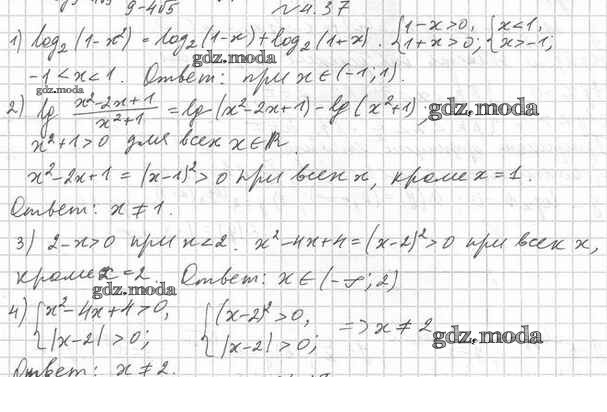 9-4√5 №4.37
1) log₂(1-x²) = log₂(1-x)+log₂(1+x). {1-x>0, {x<1,
{1+x>0; {x>-1;
gdz.moda
-1<x<1. Ответ: при x∈(-1;1).
gdz.moda
2) lg (x²-2x+1)/(x²+1) = lg(x²-2x+1)-lg(x²+1); gdz.moda
x²+1>0 для всех x∈ℝ.
x²-2x+1 = (x-1)²>0 при всех x, кроме x=1.
Ответ: x≠1.
3) 2-x>0 при x<2. x²-4x+4=(x-2)²>0 при всех x,
кроме x=2. Ответ: x∈(-∞;2)
gdz.moda
4) {x²-4x+4>0, {(x-2)²>0, =>x≠2
{|x-2|>0; {|x-2|>0; gdz.moda
Ответ: x≠2.